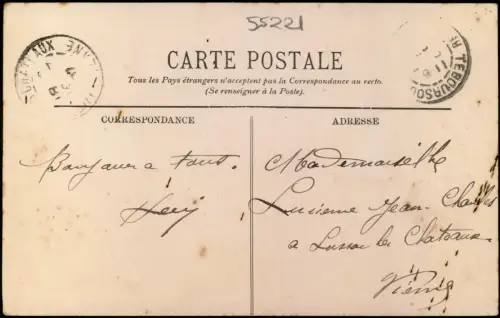 55221
CARTE POSTALE
Tous les Pays étrangers n'acceptent pas la Correspondance au recto.
(Se renseigner à la Poste).
CORRESPONDANCE
ADRESSE
Bonjour a tous.
Mademoiselle
Lucienne Jean Charles
a Lussac les Chateaux
Vienne
TEBOURSOU